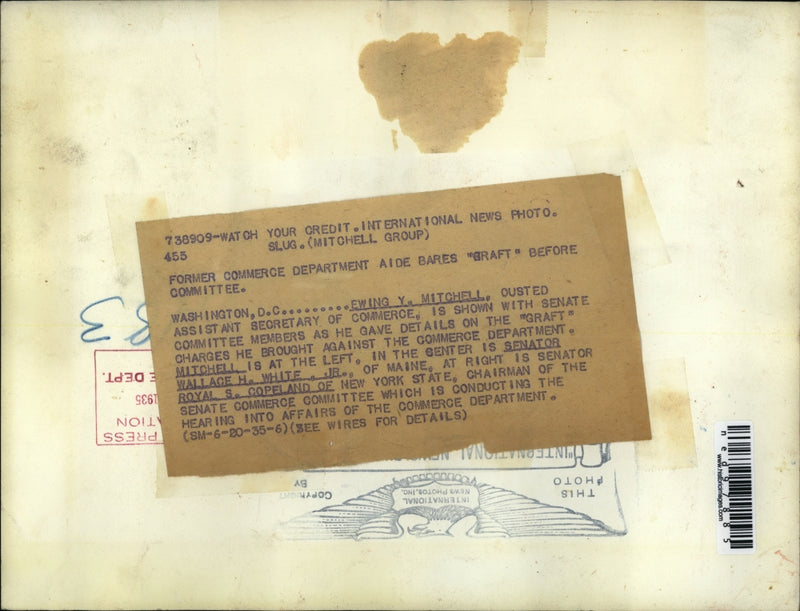 738909-WATCH YOUR CREDIT.INTERNATIONAL NEWS PHOTO.
455 SLUG.(MITCHELL GROUP)
FORMER COMMERCE DEPARTMENT AIDE BARES "GRAFT" BEFORE
COMMITTEE.
WASHINGTON,D.C..........EWING Y. MITCHELL, OUSTED
ASSISTANT SECRETARY OF COMMERCE, IS SHOWN WITH SENATE
COMMITTEE MEMBERS AS HE GAVE DETAILS ON THE "GRAFT"
CHARGES HE BROUGHT AGAINST THE COMMERCE DEPARTMENT.
MITCHELL IS AT THE LEFT. IN THE CENTER IS SENATOR
WALLACE H. WHITE, JR., OF MAINE, AT RIGHT IS SENATOR
ROYAL S. COPELAND OF NEW YORK STATE, CHAIRMAN OF THE
SENATE COMMERCE COMMITTEE WHICH IS CONDUCTING THE
HEARING INTO AFFAIRS OF THE COMMERCE DEPARTMENT.
(SM-6-20-35-6)(SEE WIRES FOR DETAILS)
E DEPT.
1935
PRESS
THIS
PHOTO
"INTERNATIONAL
COPYRIGHT
BY
INTERNATIONAL
NEWS PHOTOS, INC.
nedg7885